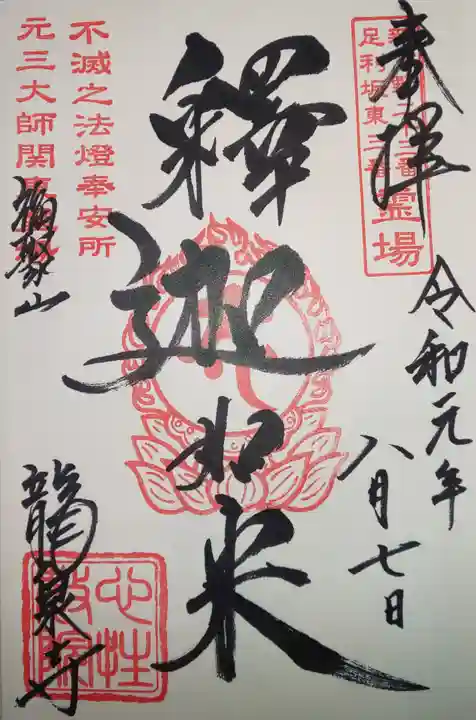 奉拝
足利坂東三番
霊場
令和元年
八月七日
釋迦如来
不滅之法燈奉安所
元三大師関東
福聚山
龍泉寺
心性